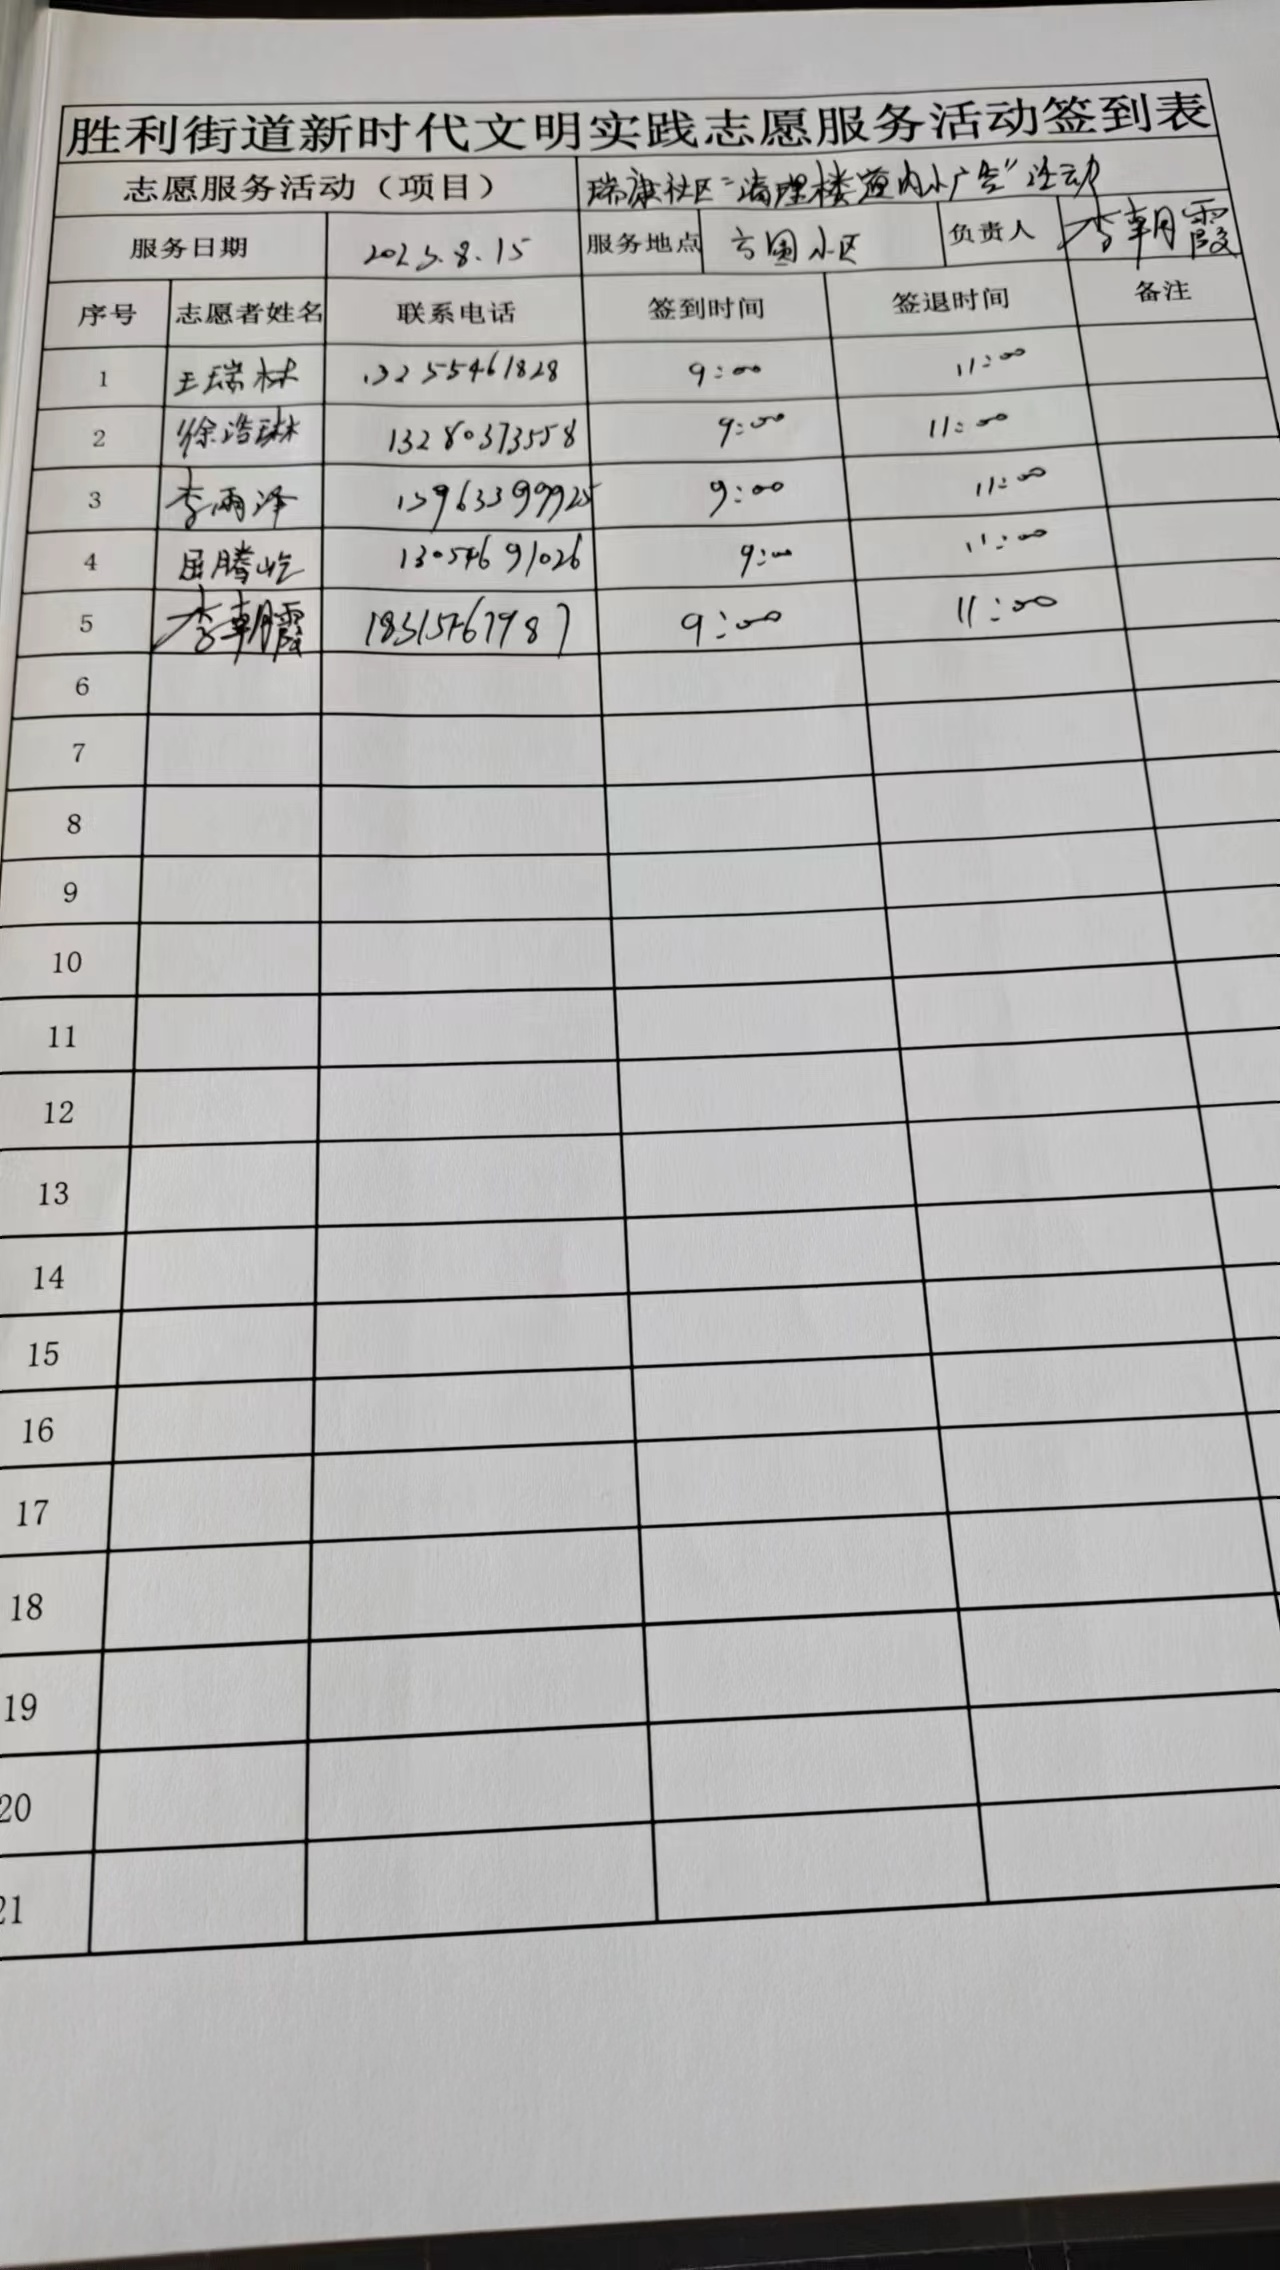 胜利街道新时代文明实践志愿服务活动签到表
志愿服务活动（项目） 瑞康社区“清理楼道内小广告”活动
服务日期 2023.8.15 服务地点 方圆小区 负责人 李朝霞
序号 志愿者姓名 联系电话 签到时间 签退时间 备注
1 王瑞林 13255461828 9:00 11:00
2 徐浩琳 13280373558 9:00 11:00
3 李雨泽 13963399925 9:00 11:00
4 屈腾屹 13054691026 9:00 11:00
5 李朝霞 18315467987 9:00 11:00
6
7
8
9
10
11
12
13
14
15
16
17
18
19
20
21